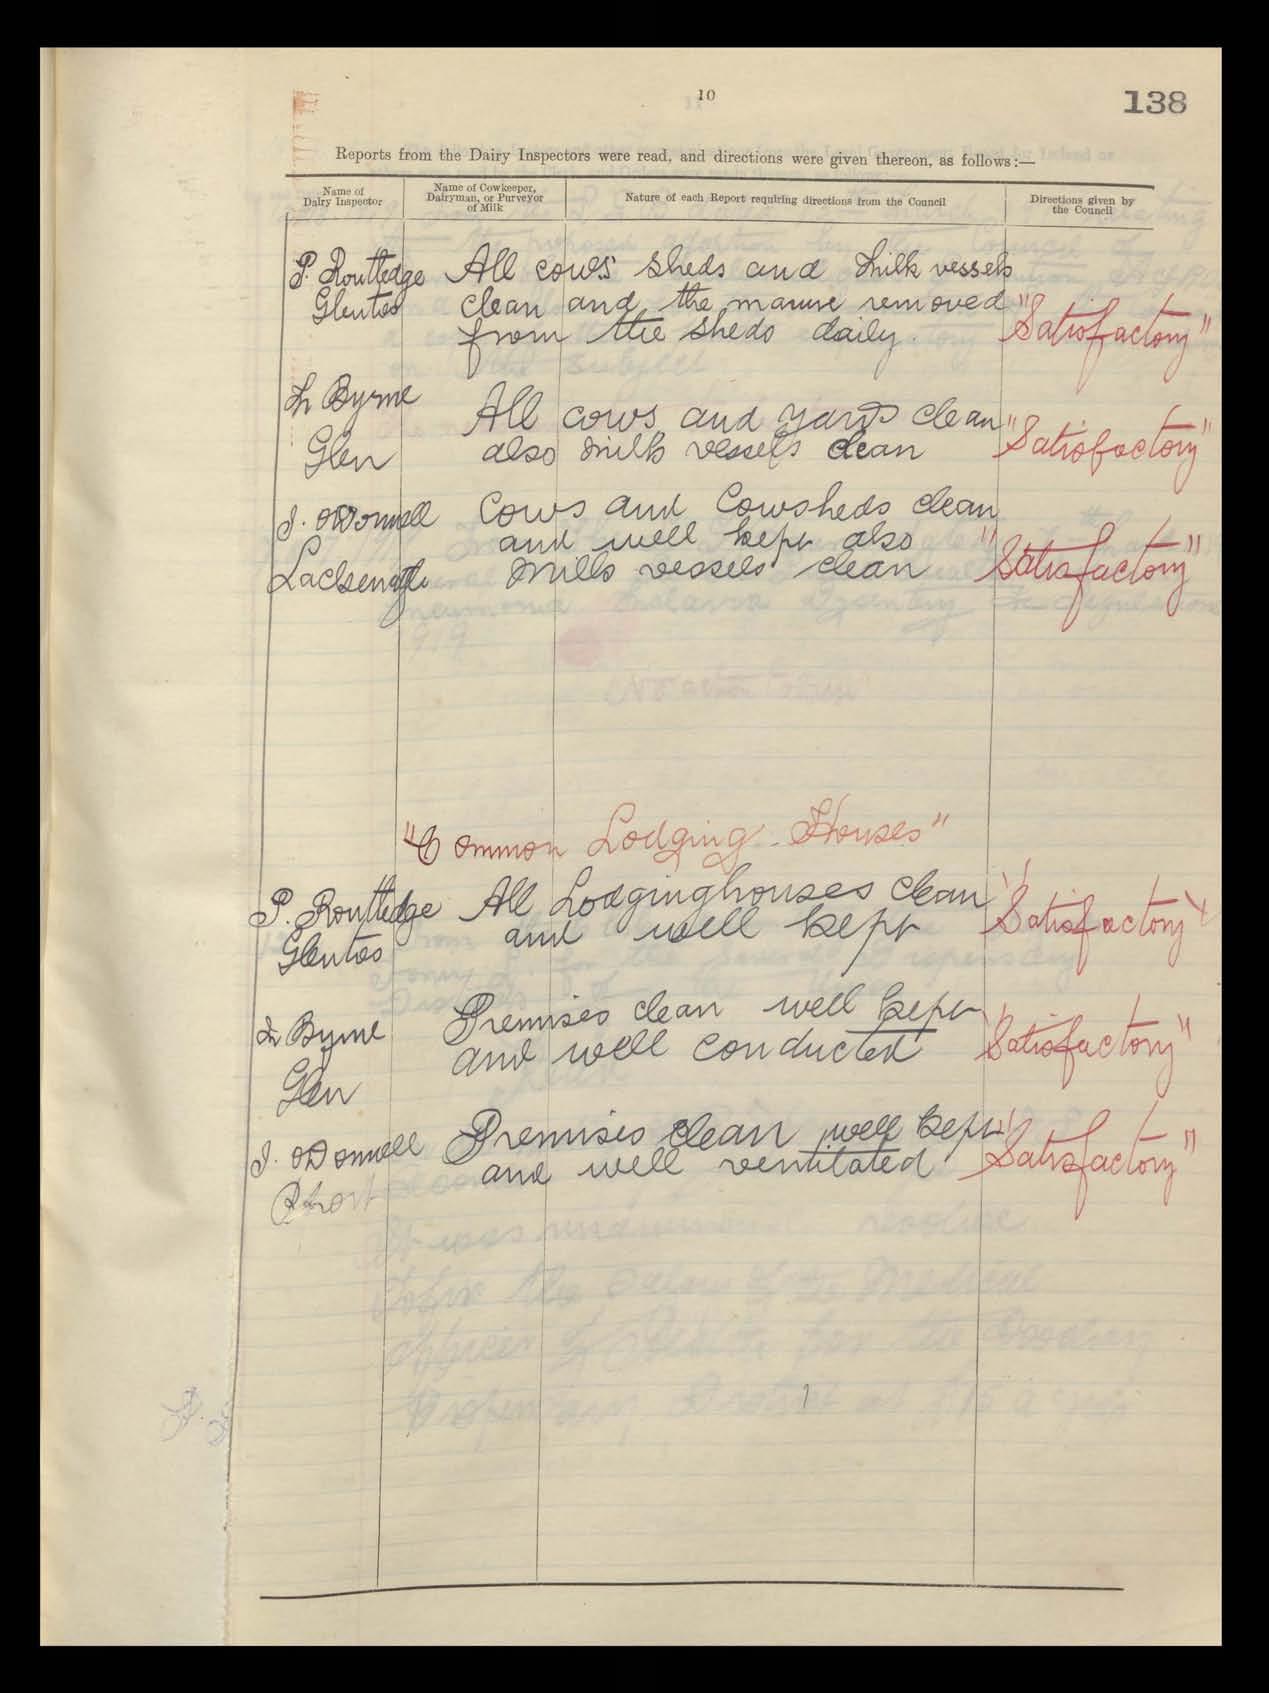 10
138
Reports from the Dairy Inspectors were read, and directions were given thereon, as follows:—
Name of Dairy Inspector
Name of Cowkeeper, Dairyman, or Purveyor of Milk
Nature of each Report requiring directions from the Council
Directions given by the Council
P. Routledge All cows' sheds and milk vessels
Glenties clean and the manure removed "Satisfactory"
from the sheds daily.
Byrne All cows and yards clean
Glen also milk vessels clean "Satisfactory"
J. O'Donnell Cows and Cowsheds clean
and well kept also
milk vessels clean "Satisfactory"
"Common Lodging Houses"
P. Routledge All Lodginghouses clean
Glenties and well kept "Satisfactory"
Byrne Premises clean well kept
Glen and well conducted "Satisfactory"
J. O'Donnell Premises clean well kept
and well ventilated "Satisfactory"